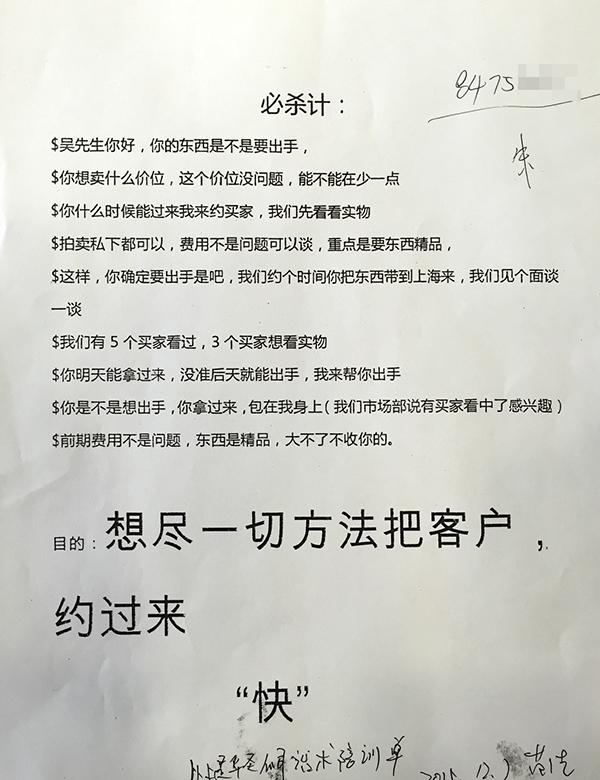 8475
必杀计：
朱
$吴先生你好，你的东西是不是要出手，
$你想卖什么价位，这个价位没问题，能不能在少一点
$你什么时候能过来我来约买家，我们先看看实物
$拍卖私下都可以，费用不是问题可以谈，重点是要东西精品，
$这样，你确定要出手是吧，我们约个时间你把东西带到上海来，我们见个面谈
一谈
$我们有 5 个买家看过，3 个买家想看实物
$你明天能拿过来，没准后天就能出手，我来帮你出手
$你是不是想出手，你拿过来，包在我身上（我们市场部说有买家看中了感兴趣）
$前期费用不是问题，东西是精品，大不了不收你的。
目的：想尽一切方法把客户，
约过来
“快”
话术培训单